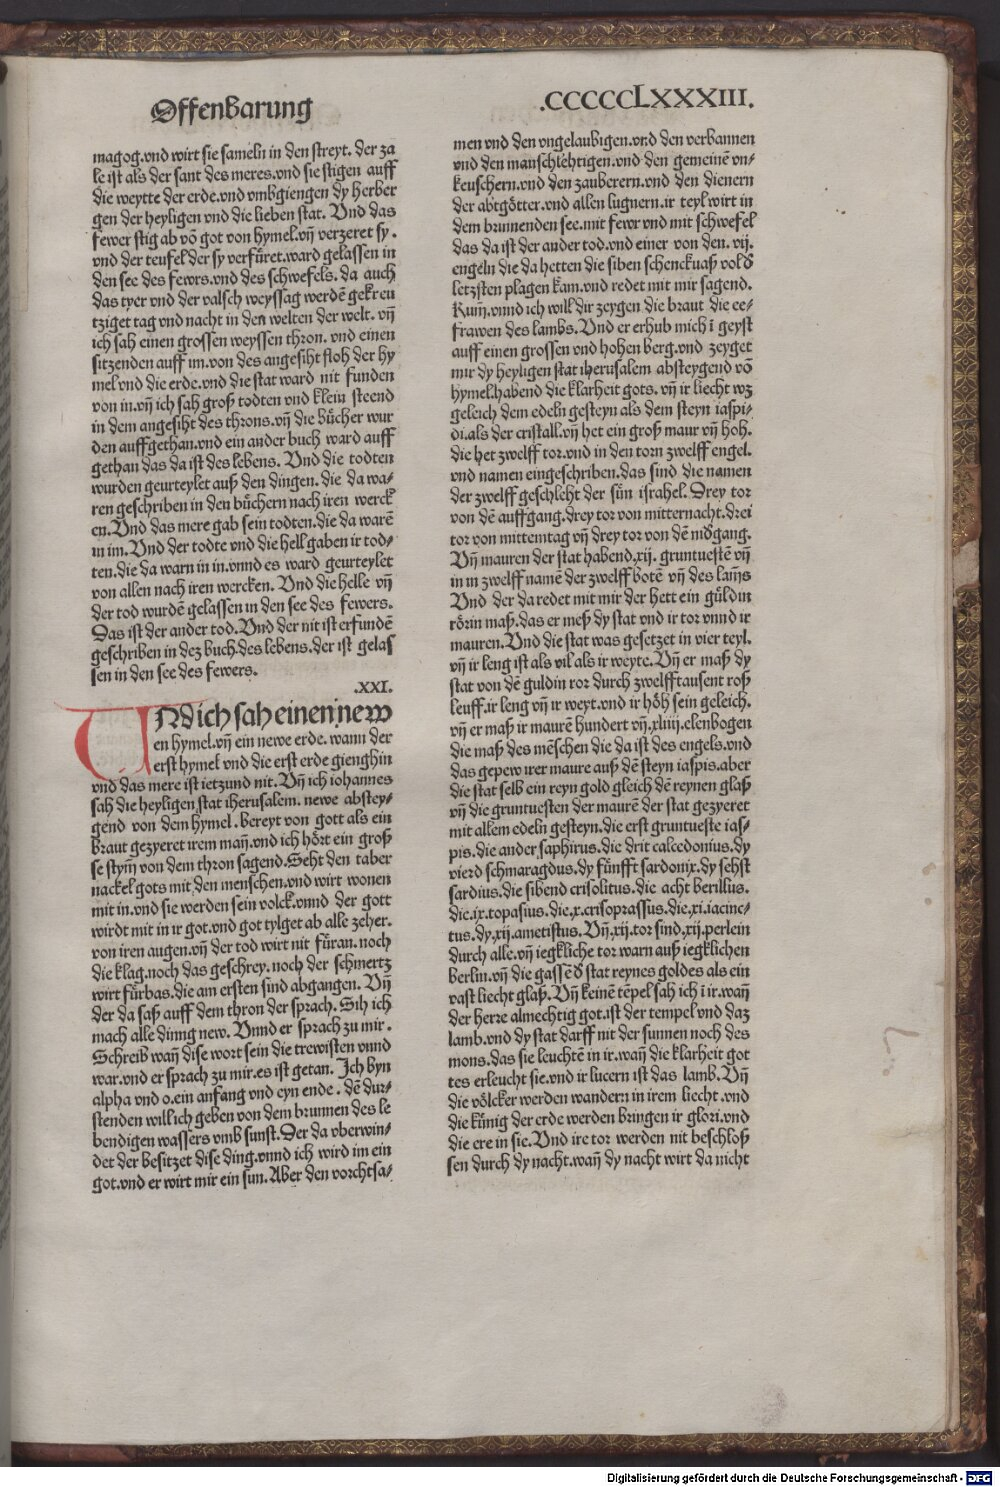 Offenbarung
.CCCCCLXXXIII.
magog.vnd wirt sie sameln in den streyt. der za
le ist als der sant des meres.vnd sie stigen auff
die weytte der erde.vnd vmbgiengen dy herber
gen der heyligen vnd die lieben stat. Vnd das
fewer stig ab võ got von hymel.vñ verzeret sy.
vnd der teufel der sy verfüret.ward gelassen in
den see des fewrs.vnd des schwefels. da auch
das tyer vnd der valsch weyssag werdẽ gekreu
tziget tag vnd nacht in den welten der welt. vñ
ich sah einen grossen weyssen thron. vnd einen
sitzenden auff im.von des angesiht floh der hy
mel vnd die erde.vnd die stat ward nit funden
von in.vñ ich sah groß todten vnd klein steend
in dem angesiht des throns.vñ die bücher wur
den auffgethan.vnd ein ander buch ward auff
gethan das da ist des lebens. Vnd die todten
wurden geurteylet auß den dingen. die da wa-
ren geschriben in den büchern nach iren werck
en.Vnd das mere gab sein todten.die da warẽ
in im.Vnd der todte vnd die hell gaben ir tod-
ten.die da warn in in.vnnd es ward geurteylet
von allen nach iren wercken. Vnd die helle vñ
der tod wurdẽ gelassen in den see des fewers.
Das ist der ander tod.Vnd der nit ist erfundẽ
geschriben in dez buch.des lebens.der ist gelas
sen in den see des fewers.
.XXI.
VNd ich sah einen new
en hymel.vñ ein newe erde. wann der
erst hymel vnd die erst erde gienghin
vnd das mere ist ietzund nit. Vñ ich iohannes
sah die heyligen stat iherusalem. newe abstey-
gend von dem hymel. bereyt von gott als ein
braut gezyeret irem mañ.vnd ich hört ein groß
se stym̃ von dem thron sagend.Seht den taber
nackel gots mit den menschen.vnd wirt wonen
mit in.vnd sie werden sein volck.vnnd der gott
wirdt mit in ir got.vnd got tylget ab alle zeher.
von iren augen.vñ der tod wirt nit füran. noch
die klag.noch das geschrey. noch der schmertz
wirt fürbas.die am ersten sind abgangen. Vñ
der da saß auff dem thron der sprach. Sih ich
mach alle dinng new. Vnnd er sprach zu mir.
Schreib wañ dise wort sein die trewisten vnnd
war.vnd er sprach zu mir.es ist getan. Ich byn
alpha vnd o.ein anfang vnd eyn ende. dẽ dur-
stenden will ich geben von dem brunnen des le
bendigen wassers vmb sunst.Der da vberwin-
det der besitzet dise ding.vnnd ich wird im ein
got.vnd er wirt mir ein sun. Aber den vorchtsa-
men vnd den vngelaubigen.vnd den verbannen
vnd den manschlehtigen.vnd den gemeinẽ vn-
keuschern.vnd den zauberern.vnd den dienern
der abtgötter.vnd allen lugnern.ir teyl wirt in
dem brunnenden see.mit fewr vnd mit schwefel
das da ist der ander tod.vnd einer von den. vij.
engeln die da hetten die siben schenckuaß vol d̕
letzsten plagen kam.vnd redet mit mir sagend.
Kum̃.vnnd ich will dir zeygen die braut die ee-
frawen des lambs. Vnd er erhub mich ĩ geyst
auff einen grossen vnd hohen berg.vnd zeyget
mir dy heyligen stat iherusalem absteygend võ
hymel.habend die klarheit gots. vñ ir liecht wz
geleich dem edeln gesteyn als dem steyn iaspi-
di.als der cristall.vñ het ein groß maur vñ hoh.
die het zwelff tor.vnd in den torn zwelff engel.
vnd namen eingeschriben.das sind die namen
der zwelff geschlcht der sün israhel. Drey tor
von dẽ auffgang.drey tor von mitternacht.drei
tor von mittemtag vñ drey tor von dẽ nidgang.
Vñ mauren der stat habend.xij. gruntuestẽ vñ
in in zwelff namẽ der zwelffbotẽ vñ des lam̃s
Vnd der da redet mit mir der hett ein güldin
rörin maß.das er meß dy stat vnd ir tor vnnd ir
mauren.Vnd die stat was gesetzet in vier teyl.
vñ ir leng ist als vil als ir weyte. Vñ er maß dy
stat von dẽ guldin ror durch zwelfftausent roß
leuff.ir leng vñ ir weyt.vnd ir höh sein geleich.
vñ er maß ir maurẽ hundert vñ.xliiij.elenbogen
die maß des mẽschen die da ist des engels.vnd
das gepew irer maure auß dẽ steyn iaspis.aber
die stat selb ein reyn gold gleich dẽ reynen glaß
vñ die gruntuesten der maurẽ der stat gezyeret
mit allem edeln gesteyn.die erst gruntueste ias-
pis.die ander saphirus.die drit calcedonius.dy
vierd schmaragdus.dy fünfft sardonix.dy sehst
sardius.die sibend crisolitus.die acht berillus.
die.ix.topasius.die.x.crisoprassus.die.xi.iacinc-
tus.dy.xij.ametistus. Vñ.xij.tor sind.xij.perlein
durch alle.vñ iegkliche tor warn auß iegklichen
berlin.vñ die gassẽ d̕ stat reynes goldes als ein
vast liecht glaß. Vñ keinẽ tẽpel sah ich ĩ ir.wañ
der herre almechtig got.ist der tempel vnd daz
lamb.vnd dy stat darff nit der sunnen noch des
mons.das sie leuchtẽ in ir.wañ die klarheit got
tes erleucht sie.vnd ir lucern ist das lamb. Vñ
die völcker werden wandern in irem liecht.vnd
die künig der erde werden bringen ir glori.vnd
die ere in sie.Vnd ire tor werden nit beschloß
sen durch dy nacht.wañ dy nacht wirt da nicht
Digitalisierung gefördert durch die Deutsche Forschungsgemeinschaft - DFG